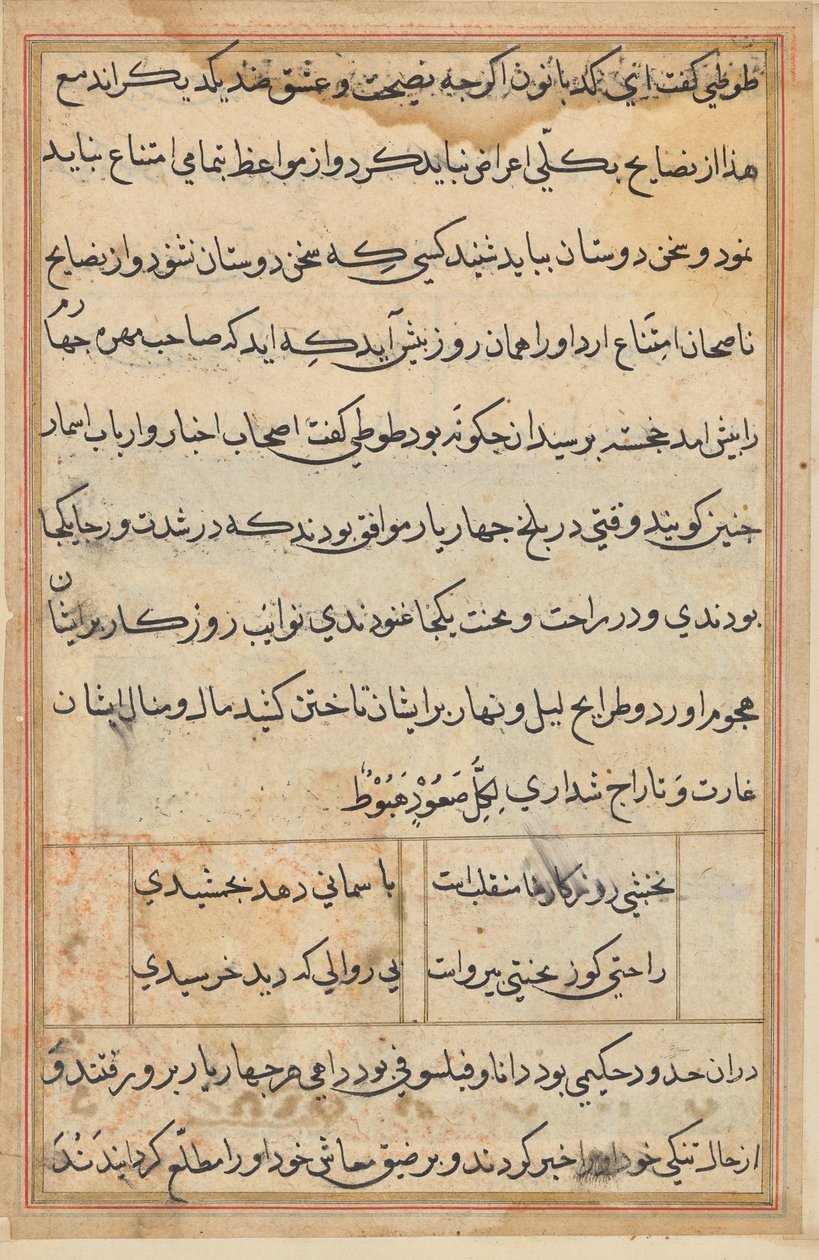 طوطي كفت اي كد بانون اكرجه نصيحت و عشق ضد يكديكراند مع
هذا از نصايح بكلّي اعراض نبايد كرد و از مواعظ بتمامي امتناع نبايد
نمود و سخن دوستان ببايد شنيد كسي كِه سخن دوستان نشنود و از نصايح
ناصحان امتِنَاع ارد او را همان روز بيش آيد كِه ايد كه صاحب مهره جهارم
را بيش امد خجسته برسيد ان جكونه بود طوطي كفت اصحاب اخبار و ارباب اسمار
جنين كويند وقتي در بلخ جهار يار موافق بودند كه در شدت و رجا يكجا
بودندي و در راحت و محنت يكجا غنودندي نوائب روزكار بر ايشان
هجوم اورد و طرايح ليل و نهار بر ايشان تاختن كنيد مال و منال ايشان
غارت وَ تاراج شد اري لِكُلِّ صَعُوْدٍ هَبُوْطٌ
نخشبي روزكارها منقلب است
با سماني دهد بجمشيدي
راحتي كوز محنتي بيرواست
بي زوالي كه ديد خرسيدي
دران حدود حكيمي بود دانا و فيلسوفي بود داهي هر جهار يار برو رفتند وَ
از حال تنكي خود او را خبر كردند و بر ضيق معاش خود او را مطلّع كردايندَنُدَ